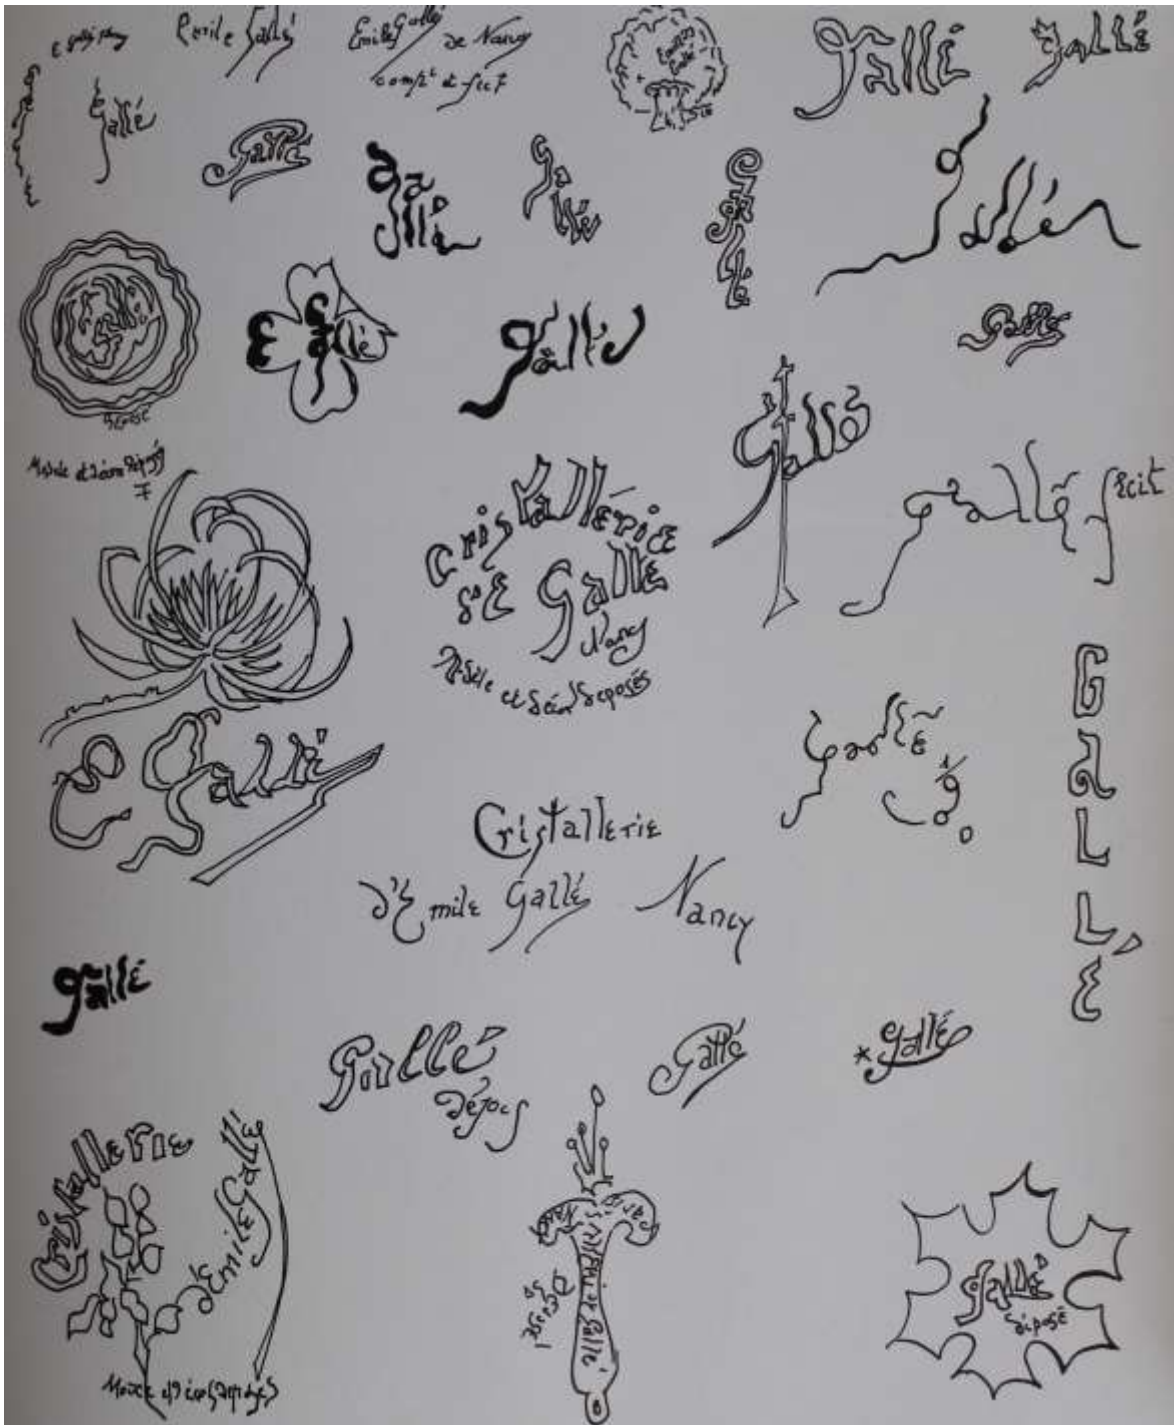 E. Gallé Nancy
Emile Gallé
Emile Gallé
de Nancy
comp.t et fec.t
Gallé
Gallé
Gallé
Gallé
Gallé
Gallé
Gallé
Gallé
Gallé
E
Gallé
Gallé
Gallé
déposé
Gallé
Modèle et décor déposés
Gallé fecit
Cristallerie
d'E Gallé
Nancy
Modèle et décor déposés
Gallé
E Gallé
GALLÉ
Cristallerie
d'Emile Gallé Nancy
Gallé
Gallé
déposé
Gallé
Gallé
Cristallerie
d'Emile Gallé
Modèle et décor déposés
Gallé
Déposé
Gallé
déposé